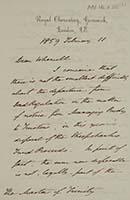 Royal Observatory, Greenwich,
London, S.E.
1859 February 11
Dear Whewell
I conceive that
there is not the smallest difficulty
about the departure from
in the matter
of notice from Managing Body
to Trustees, in this
of the Sheepshanks
Fund Proceeds. In point of
fact, the now
is not legally part of the
The Master of Trinity